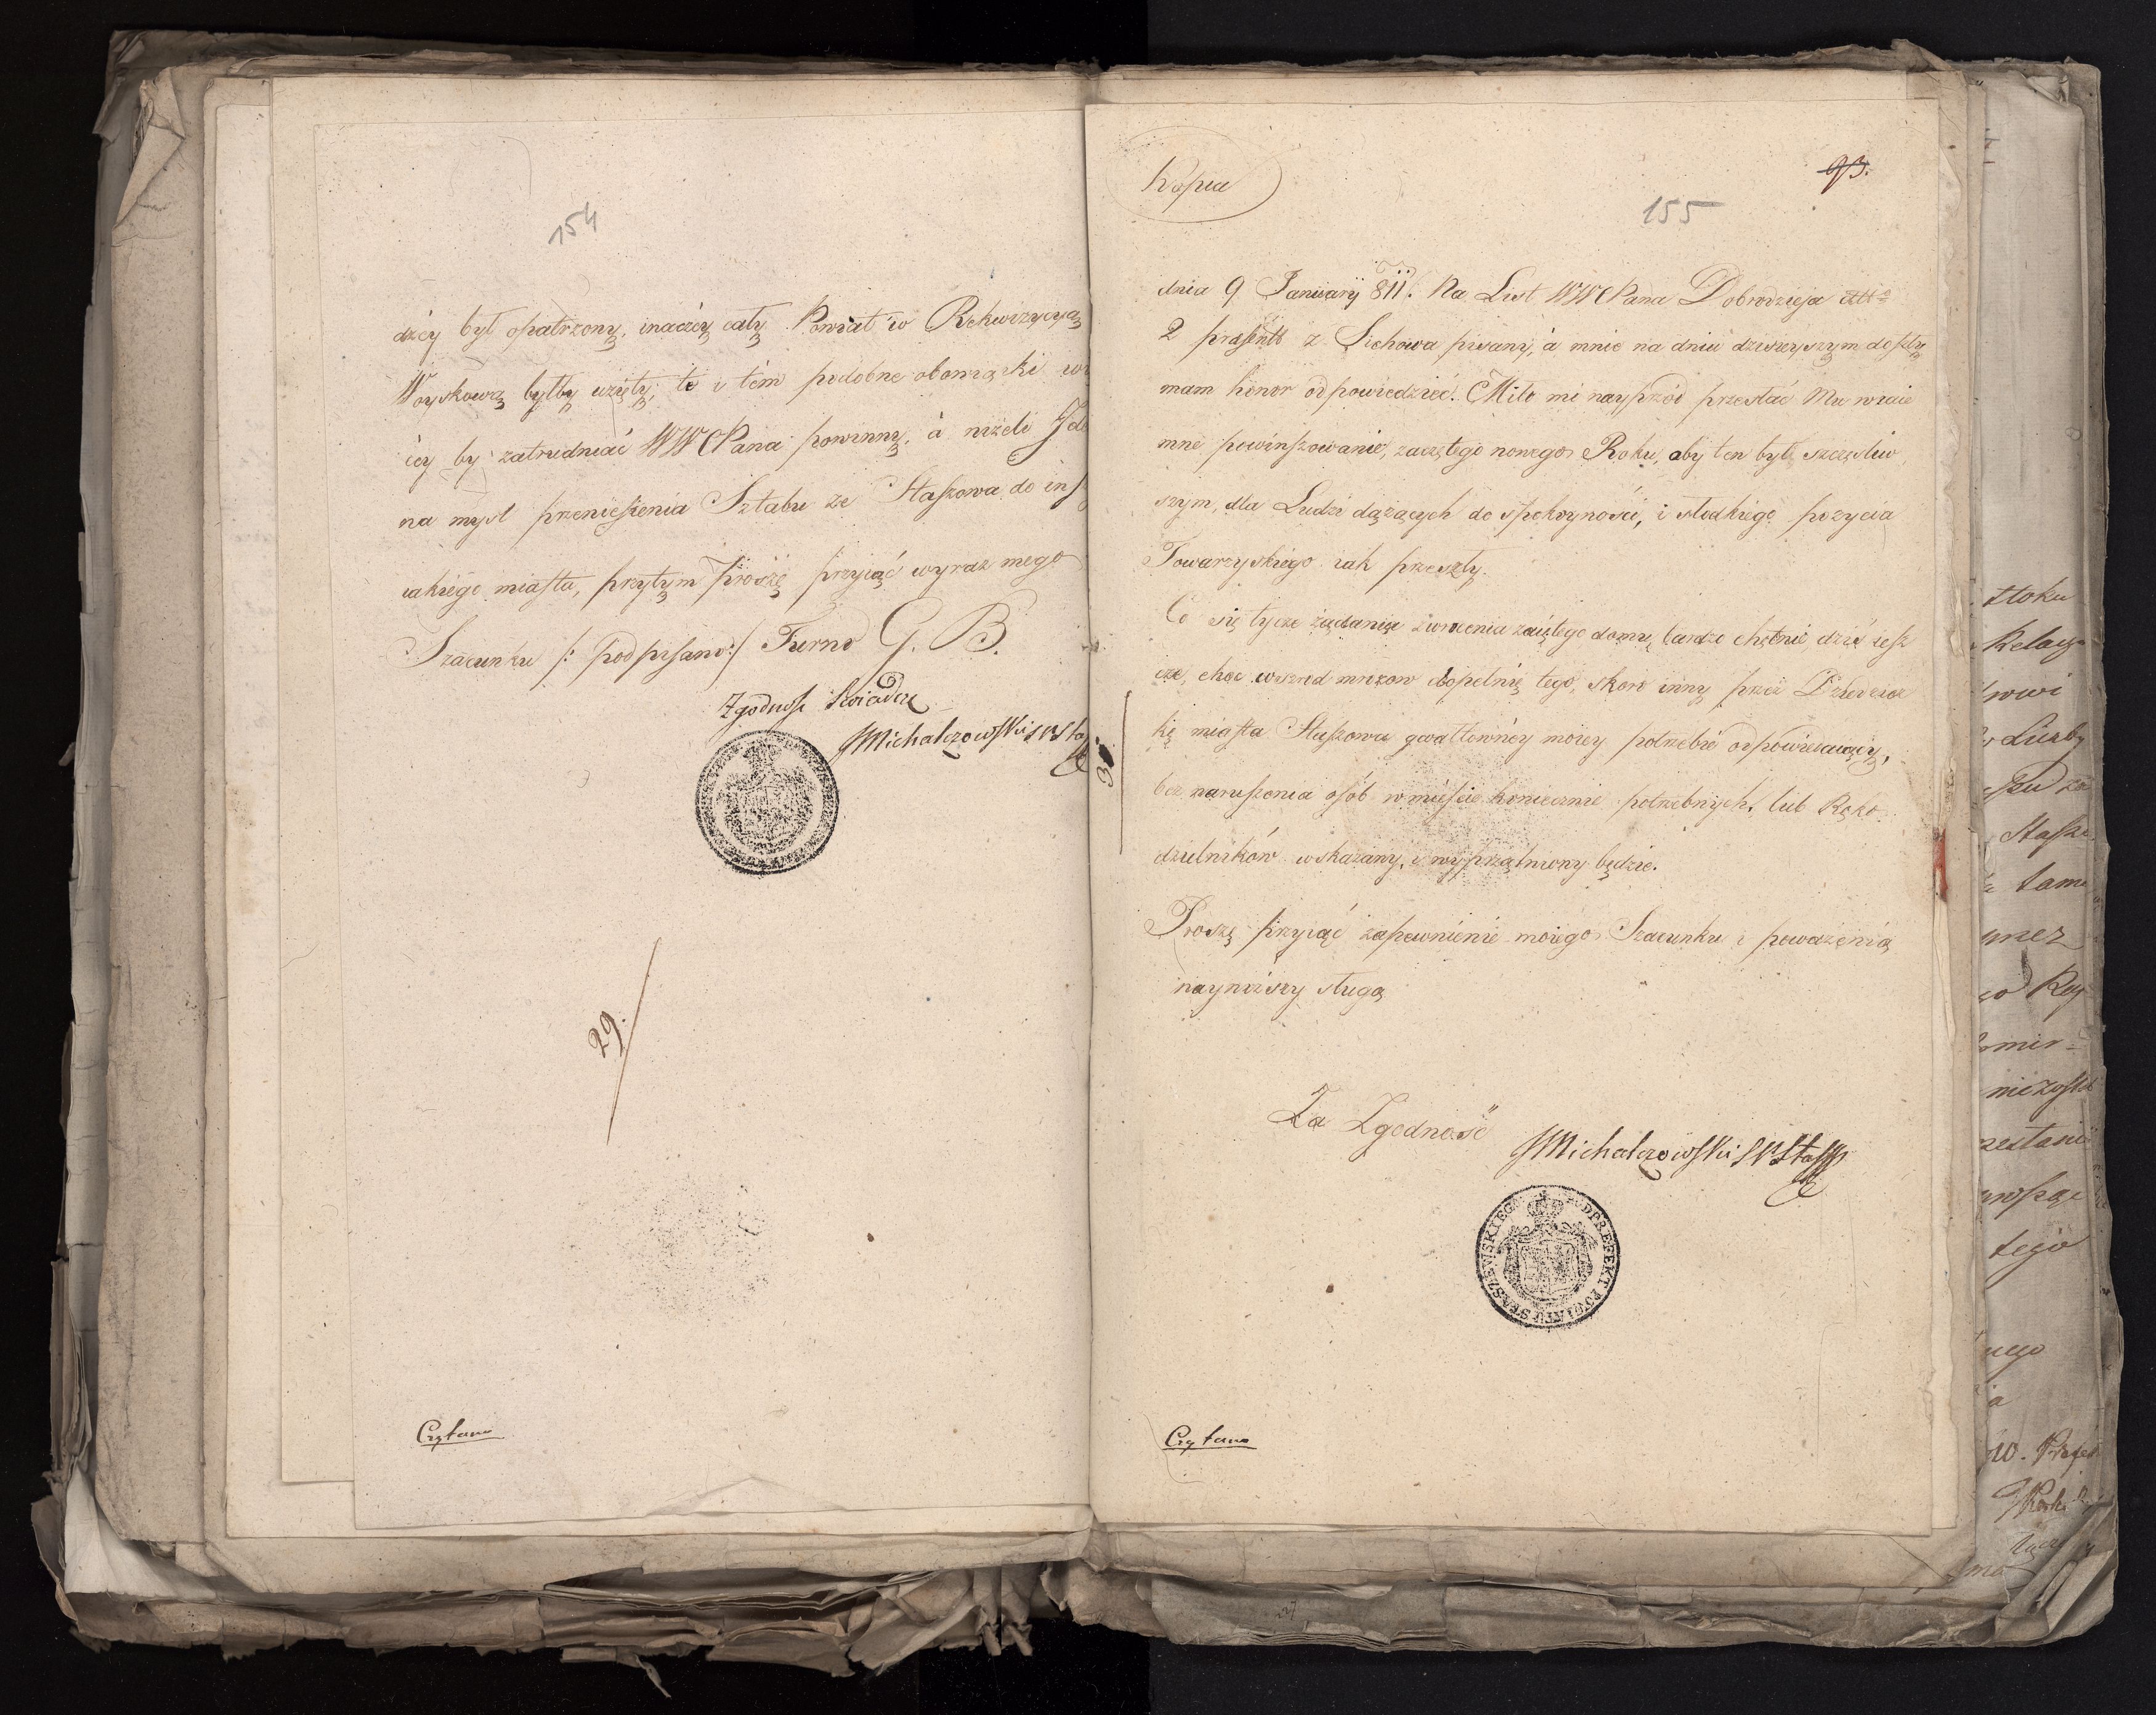 154
dzcy był opatrzony, inaczey cały Powiat w Rekwizycyą
Woyskową byłby wzięty; te i tém podobne obowiązki
icy by zatrudniać WWCPana powinny, á niżeli
na mysl przeniesienia Sztabu ze Staszowa do
iakiégo miasta, przytym proszę przyiąć wyraz mego
Szacunku /: podpisano :/ Turno G. B.
Zgodność świadczę
Michalczowski
29.
Czytano
Kopia
93.
155
dnia 9 Januarij 811. Na List WWCPana Dobrodzieja
2 praesentis z Sichowa pisany, á mnie na dniu dzisieyszym doszły
mam honor odpowiedzieć. Miło mi nayprzód przesłać Mu wzaie
mne powinszowanie, zaczętego nowego Roku, aby ten był szczęsliw
szym, dla Ludzi dążących do spokoyności, i słodkiégo pożycia
Towarzyskiégo iak przeszły.
Co się tycze żądania zwrócenia zaiętego domu, bardzo chętnie dziś iesz
cze, choc wsrzod mrozow dopełnię tego, skoro inny przez Dziedzicz
kę miasta Staszowa gwałtownéy moiey potrzebie odpowiedaiący,
bez naruszenia osób w mieście koniecznie potrzebnych, lub Ręko
dzielników wskazany, i wyprzątniony będzie.
3
Proszę przyiąć zapewnienie moiego Szacunku i poważenia
nayniższy sługa
Za Zgodność
Michalczowski
PODPREFEKT POWIATU
Czytano